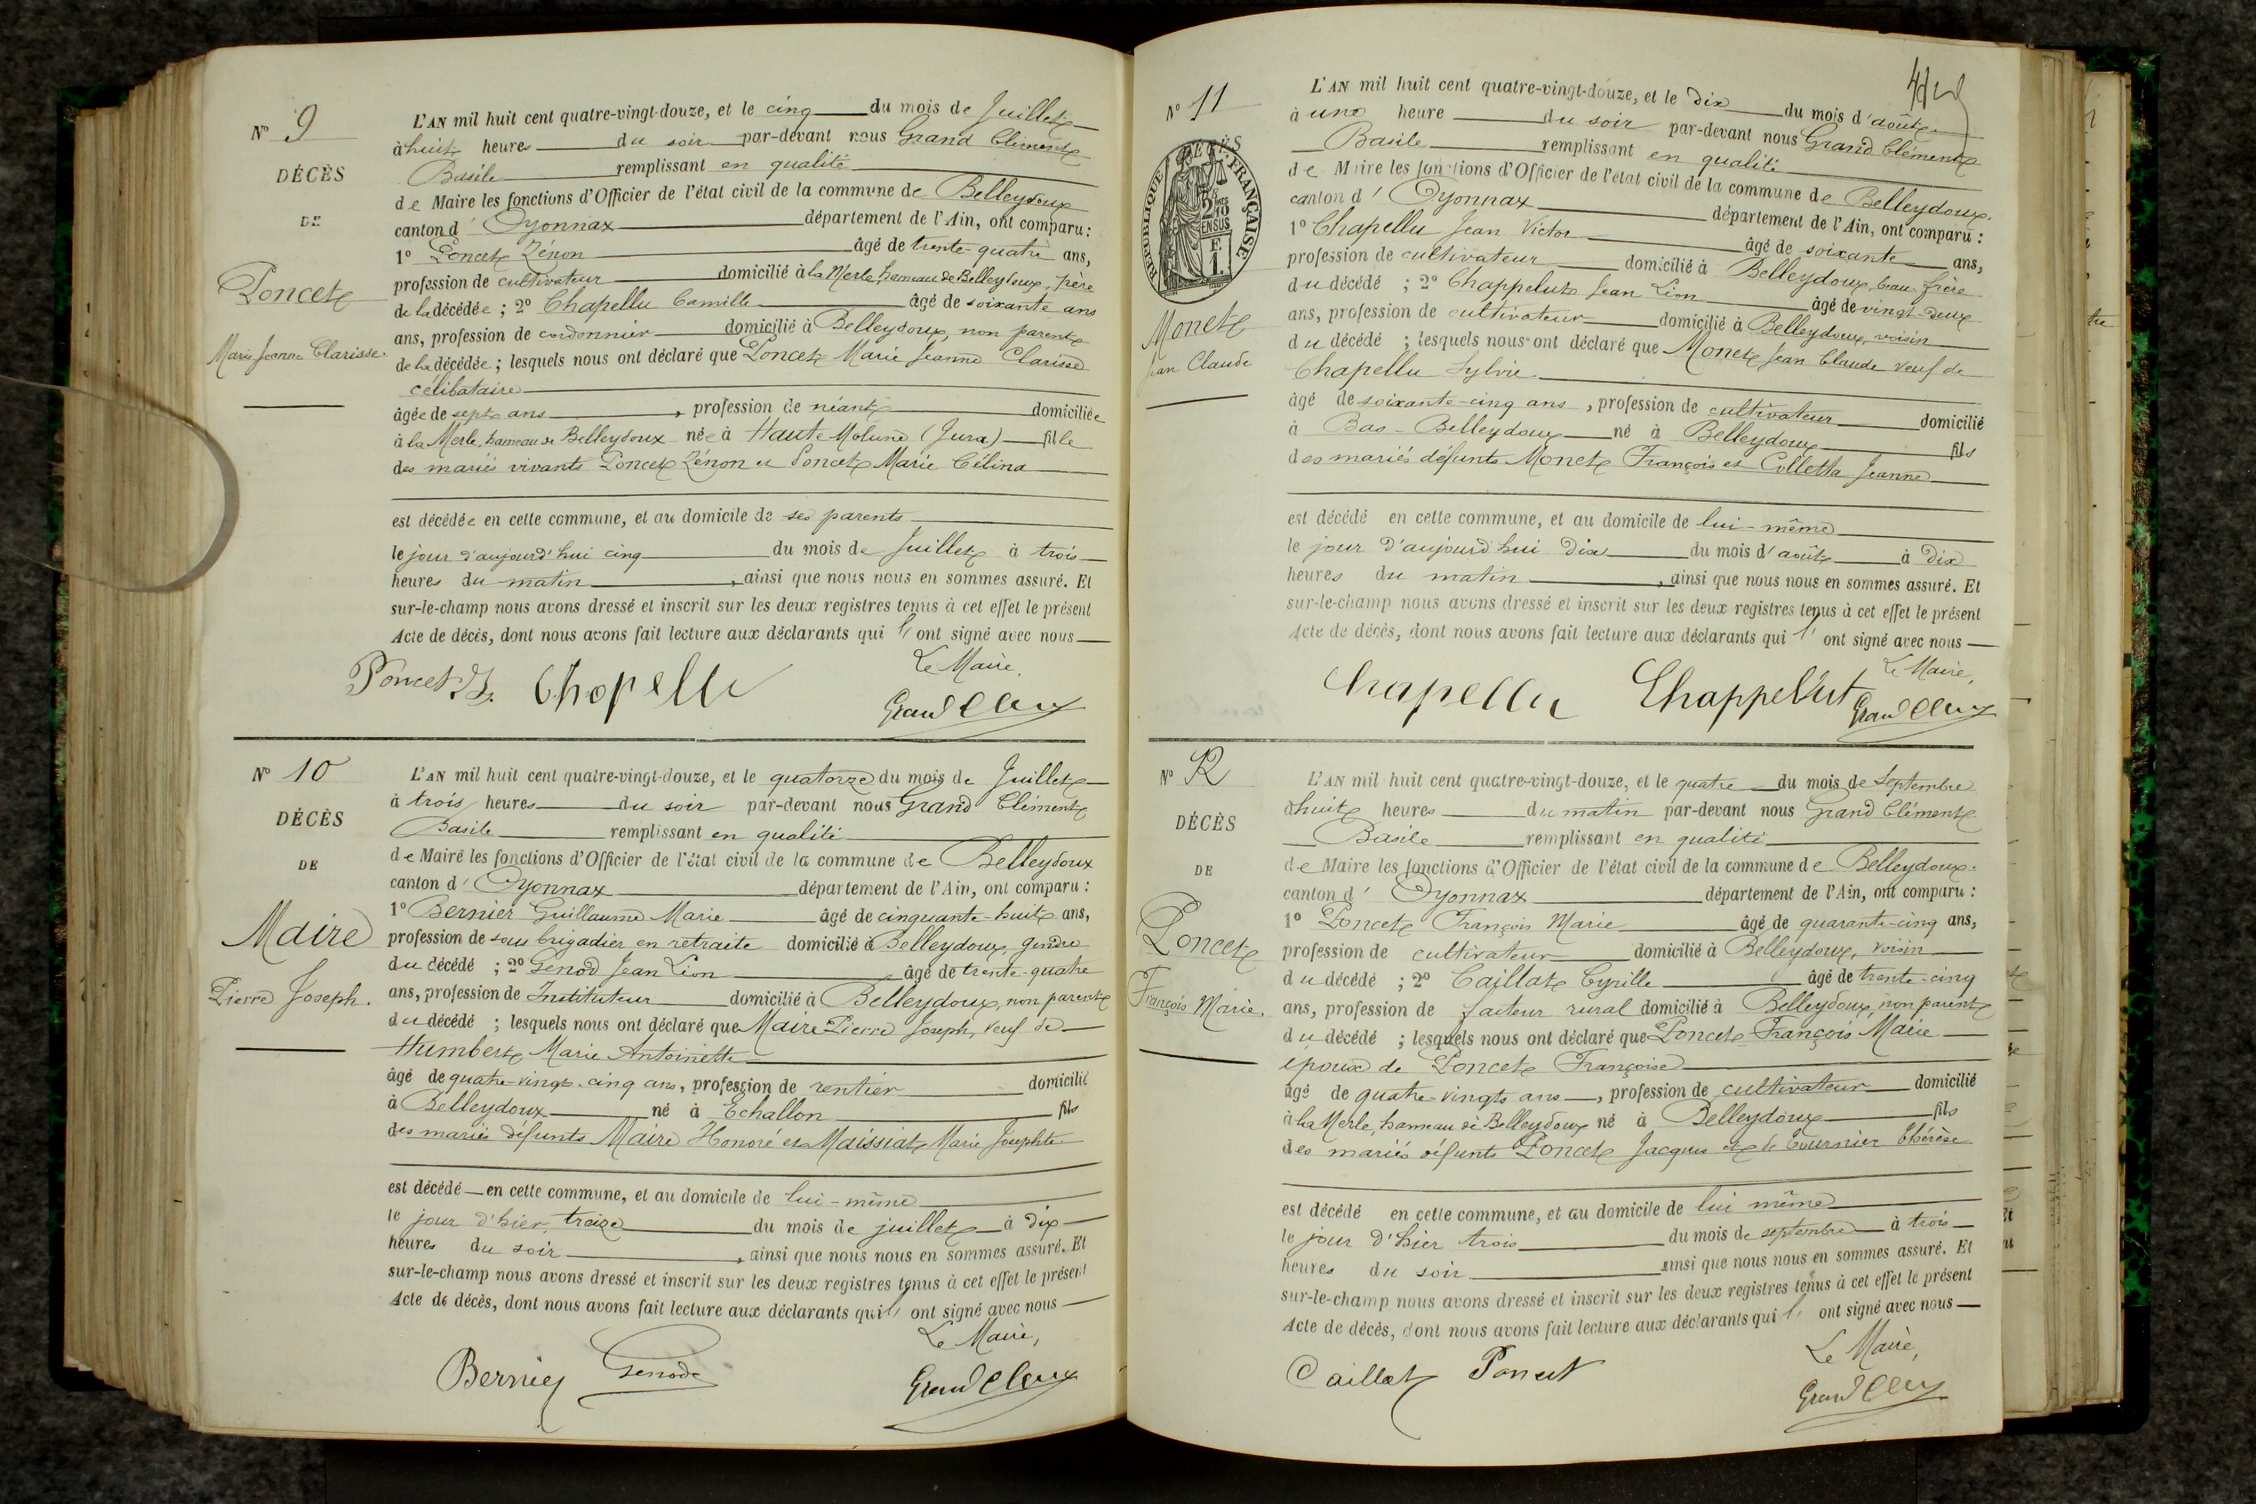 N° 9
DÉCÈS
DE
Poncet
Marie Jeanne Clarisse.
L'AN mil huit cent quatre-vingt-douze, et le cinq du mois de Juillet
à huit heures du soir par-devant nous Grand Clément
Basile remplissant en qualité
de Maire les fonctions d'Officier de l'état civil de la commune de Belleydoux
canton d'Oyonnax département de l'Ain, ont comparu :
1° Poncet Zénon âgé de trente-quatre ans,
profession de cultivateur domicilié à la Merle, hameau de Belleydoux, frère
de la décédée ; 2° Chapellu Camille âgé de soixante ans
ans, profession de cordonnier domicilié à Belleydoux, non parent
de la décédée ; lesquels nous ont déclaré que Poncet Marie Jeanne Clarisse
célibataire
âgée de sept ans, profession de néant domiciliée
à la Merle, hameau de Belleydoux née à Haute Molune (Jura) fille
des mariés vivants Poncet Zénon et Poncet Marie Célina
est décédée en cette commune, et au domicile de ses parents
le jour d'aujourd'hui cinq du mois de Juillet à trois
heures du matin, ainsi que nous nous en sommes assuré. Et
sur-le-champ nous avons dressé et inscrit sur les deux registres tenus à cet effet le présent
Acte de décès, dont nous avons fait lecture aux déclarants qui l' ont signé avec nous
Le Maire,
Poncet Z. Chapellu Grand Clém
N° 10
DÉCÈS
DE
Maire
Pierre Joseph.
L'AN mil huit cent quatre-vingt-douze, et le quatorze du mois de Juillet
à trois heures du soir par-devant nous Grand Clément
Basile remplissant en qualité
de Maire les fonctions d'Officier de l'état civil de la commune de Belleydoux
canton d'Oyonnax département de l'Ain, ont comparu :
1° Bernier Guillaume Marie âgé de cinquante-huit ans,
profession de sous brigadier en retraite domicilié à Belleydoux, gendre
du décédé ; 2° Genod Jean Léon âgé de trente-quatre
ans, profession de Instituteur domicilié à Belleydoux, non parent
du décédé ; lesquels nous ont déclaré que Maire Pierre Joseph, veuf de
Humbert Marie Antoinette
âgé de quatre-vingt-cinq ans, profession de rentier domicilié
à Belleydoux né à Echallon fils
des mariés défunts Maire Honoré et Maissiat Marie Josephte
est décédé en cette commune, et au domicile de lui-même
le jour d'hier, treize du mois de juillet à dix
heures du soir, ainsi que nous nous en sommes assuré. Et
sur-le-champ nous avons dressé et inscrit sur les deux registres tenus à cet effet le présent
Acte de décès, dont nous avons fait lecture aux déclarants qui l' ont signé avec nous
Le Maire,
Bernier Genod Grand Clém
N° 11
DÉCÈS
RÉPUBLIQUE FRANÇAISE
2/10 EN SUS
F. 1.
Monet
Jean Claude
L'AN mil huit cent quatre-vingt-douze, et le dix du mois d'août
à une heure du soir par-devant nous Grand Clément
Basile remplissant en qualité
de Maire les fonctions d'Officier de l'état civil de la commune de Belleydoux.
canton d'Oyonnax département de l'Ain, ont comparu :
1° Chapellu Jean Victor âgé de soixante ans,
profession de cultivateur domicilié à Belleydoux, beau-frère
du décédé ; 2° Chappelut Jean Léon âgé de vingt-deux
ans, profession de cultivateur domicilié à Belleydoux, voisin
du décédé ; lesquels nous ont déclaré que Monet Jean Claude veuf de
Chapellu Sylvie
âgé de soixante-cinq ans, profession de cultivateur domicilié
à Bas-Belleydoux né à Belleydoux fils
des mariés défunts Monet François et Colletta Jeanne
est décédé en cette commune, et au domicile de lui-même
le jour d'aujourd'hui dix du mois d'août à dix
heures du matin, ainsi que nous nous en sommes assuré. Et
sur-le-champ nous avons dressé et inscrit sur les deux registres tenus à cet effet le présent
Acte de décès, dont nous avons fait lecture aux déclarants qui l' ont signé avec nous
Le Maire,
Chapellu Chappelut Grand Clém
N° 12
DÉCÈS
DE
Poncet
François Marie.
L'AN mil huit cent quatre-vingt-douze, et le quatre du mois de Septembre
à huit heures du matin par-devant nous Grand Clément
Basile remplissant en qualité
de Maire les fonctions d'Officier de l'état civil de la commune de Belleydoux.
canton d'Oyonnax département de l'Ain, ont comparu :
1° Poncet François Marie âgé de quarante-cinq ans,
profession de cultivateur domicilié à Belleydoux, voisin
du décédé ; 2° Caillat Cyrille âgé de trente-cinq
ans, profession de facteur rural domicilié à Belleydoux, non parent
du décédé ; lesquels nous ont déclaré que Poncet François Marie
époux de Poncet Françoise
âgé de quatre-vingts ans, profession de cultivateur domicilié
à la Merle, hameau de Belleydoux né à Belleydoux fils
des mariés défunts Poncet Jacques et de Tournier Thérèse
est décédé en cette commune, et au domicile de lui même
le jour d'hier trois du mois de septembre à trois
heures du soir ainsi que nous nous en sommes assuré. Et
sur-le-champ nous avons dressé et inscrit sur les deux registres tenus à cet effet le présent
Acte de décès, dont nous avons fait lecture aux déclarants qui l' ont signé avec nous
Le Maire,
Caillat Poncet Grand Clém